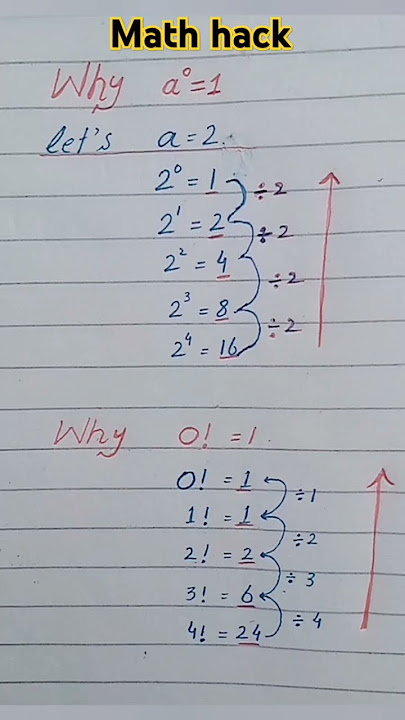 Math hack
Why a⁰=1
let's a=2.
2⁰ = 1
÷2
2¹ = 2
÷2
2² = 4
÷2
2³ = 8
÷2
2⁴ = 16
Why 0! =1.
0! = 1
÷1
1! = 1
÷2
2! = 2
÷3
3! = 6
÷4
4! = 24